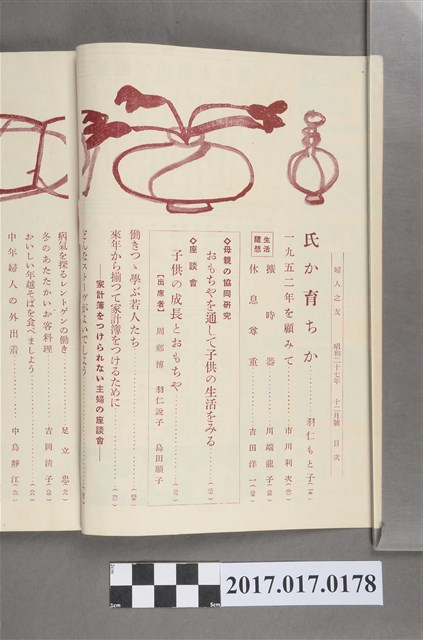 婦人之友 昭和二十七年 十二月號 目次
氏か育ちか 羽仁もと子
一九五二年を顧みて 市川利次
生活隨想
擴時器 川端龍子
休息尊重 吉田洋一
◇母親の協同研究
おもちやを通して子供の生活をみる
◇座談會
子供の成長とおもちや
【出席者】 周郷博 羽仁說子 島田順子
働きつゝ學ぶ若人たち
來年から揃つて家計簿をつけるために
―家計簿をつけられない主婦の座談會―
どんなストーヴがよいでしよう
病氣を探るレントゲンの働き 足立忠
冬のあたたかいお客料理 吉岡清子
おいしい年越そばを食べましよう
中年婦人の外出着 中島靜江
5cm
5cm
2017.017.0178